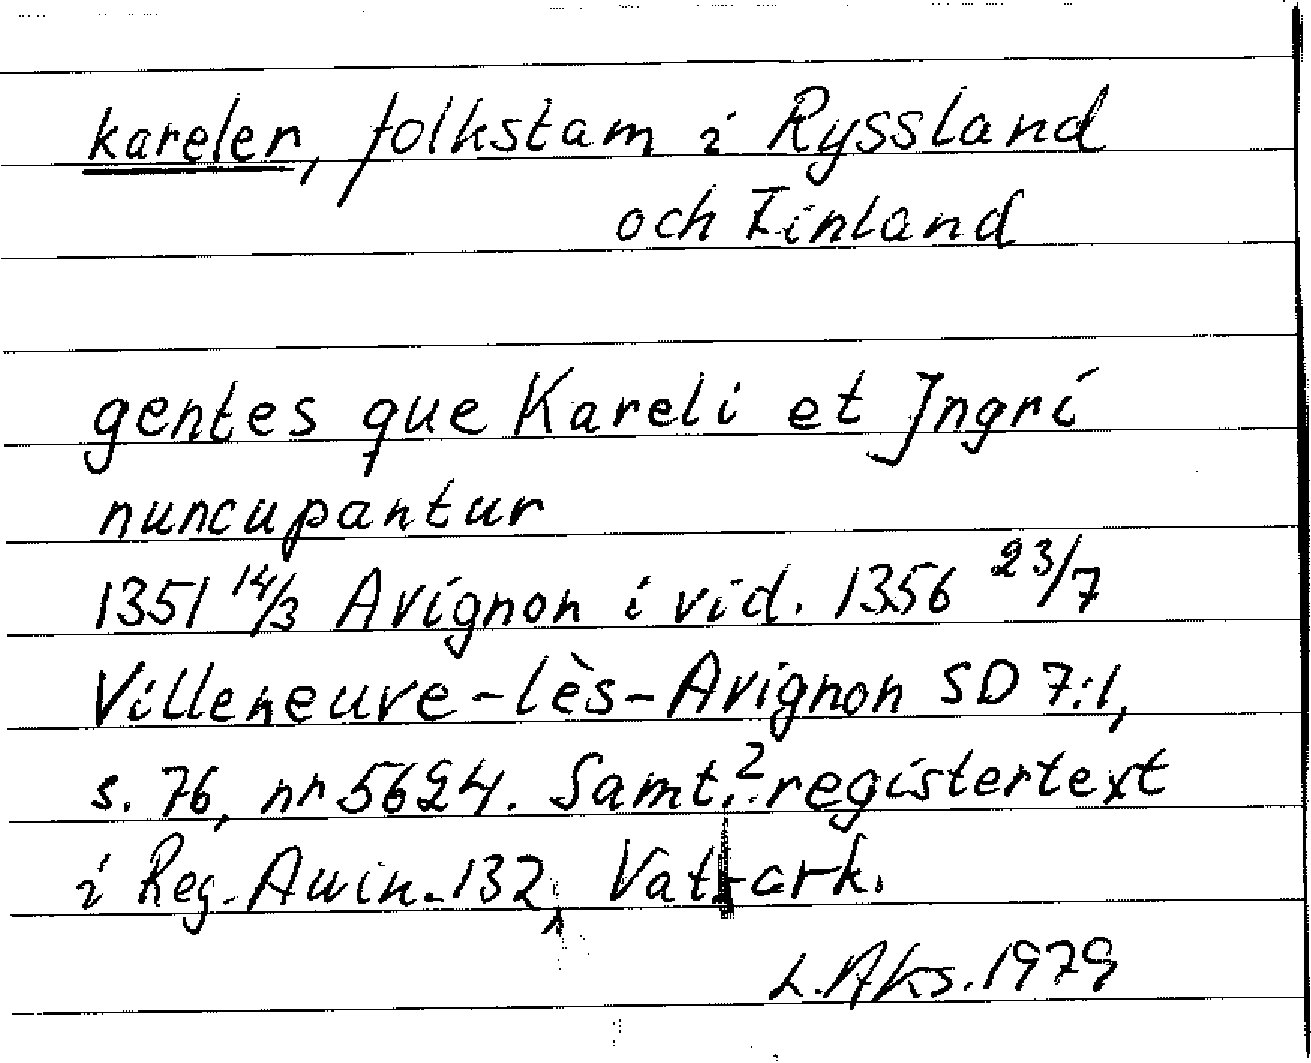 kareler, folkstam i Ryssland
och Finland
gentes que Kareli et Jngri
nuncupantur
1351 14/3 Avignon i vid. 1356 23/7
Villeneuve-lès-Avignon SD 7:1,
s. 76, nr 5624. Samt.² registertext
i Reg. Auin. 132, Vat. ark.
L. Aks. 1979